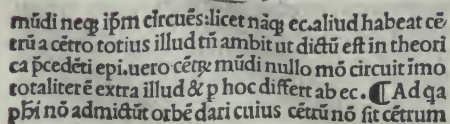 mūdi neqꝫ ip̄m circuēs: licet nāqꝫ ec. aliud habeat cē
trū a cētro totius illud tn̄ ambit ut dictū est in theori
ca p̄cedēti epi. uero cētꝝ mūdi nullo mō circuit īmo
totaliter ē extra illud & p hoc differt ab ec. ¶ Ad qa
phī nō admictūt orbē dari cuius cētrū nō sit cētrum